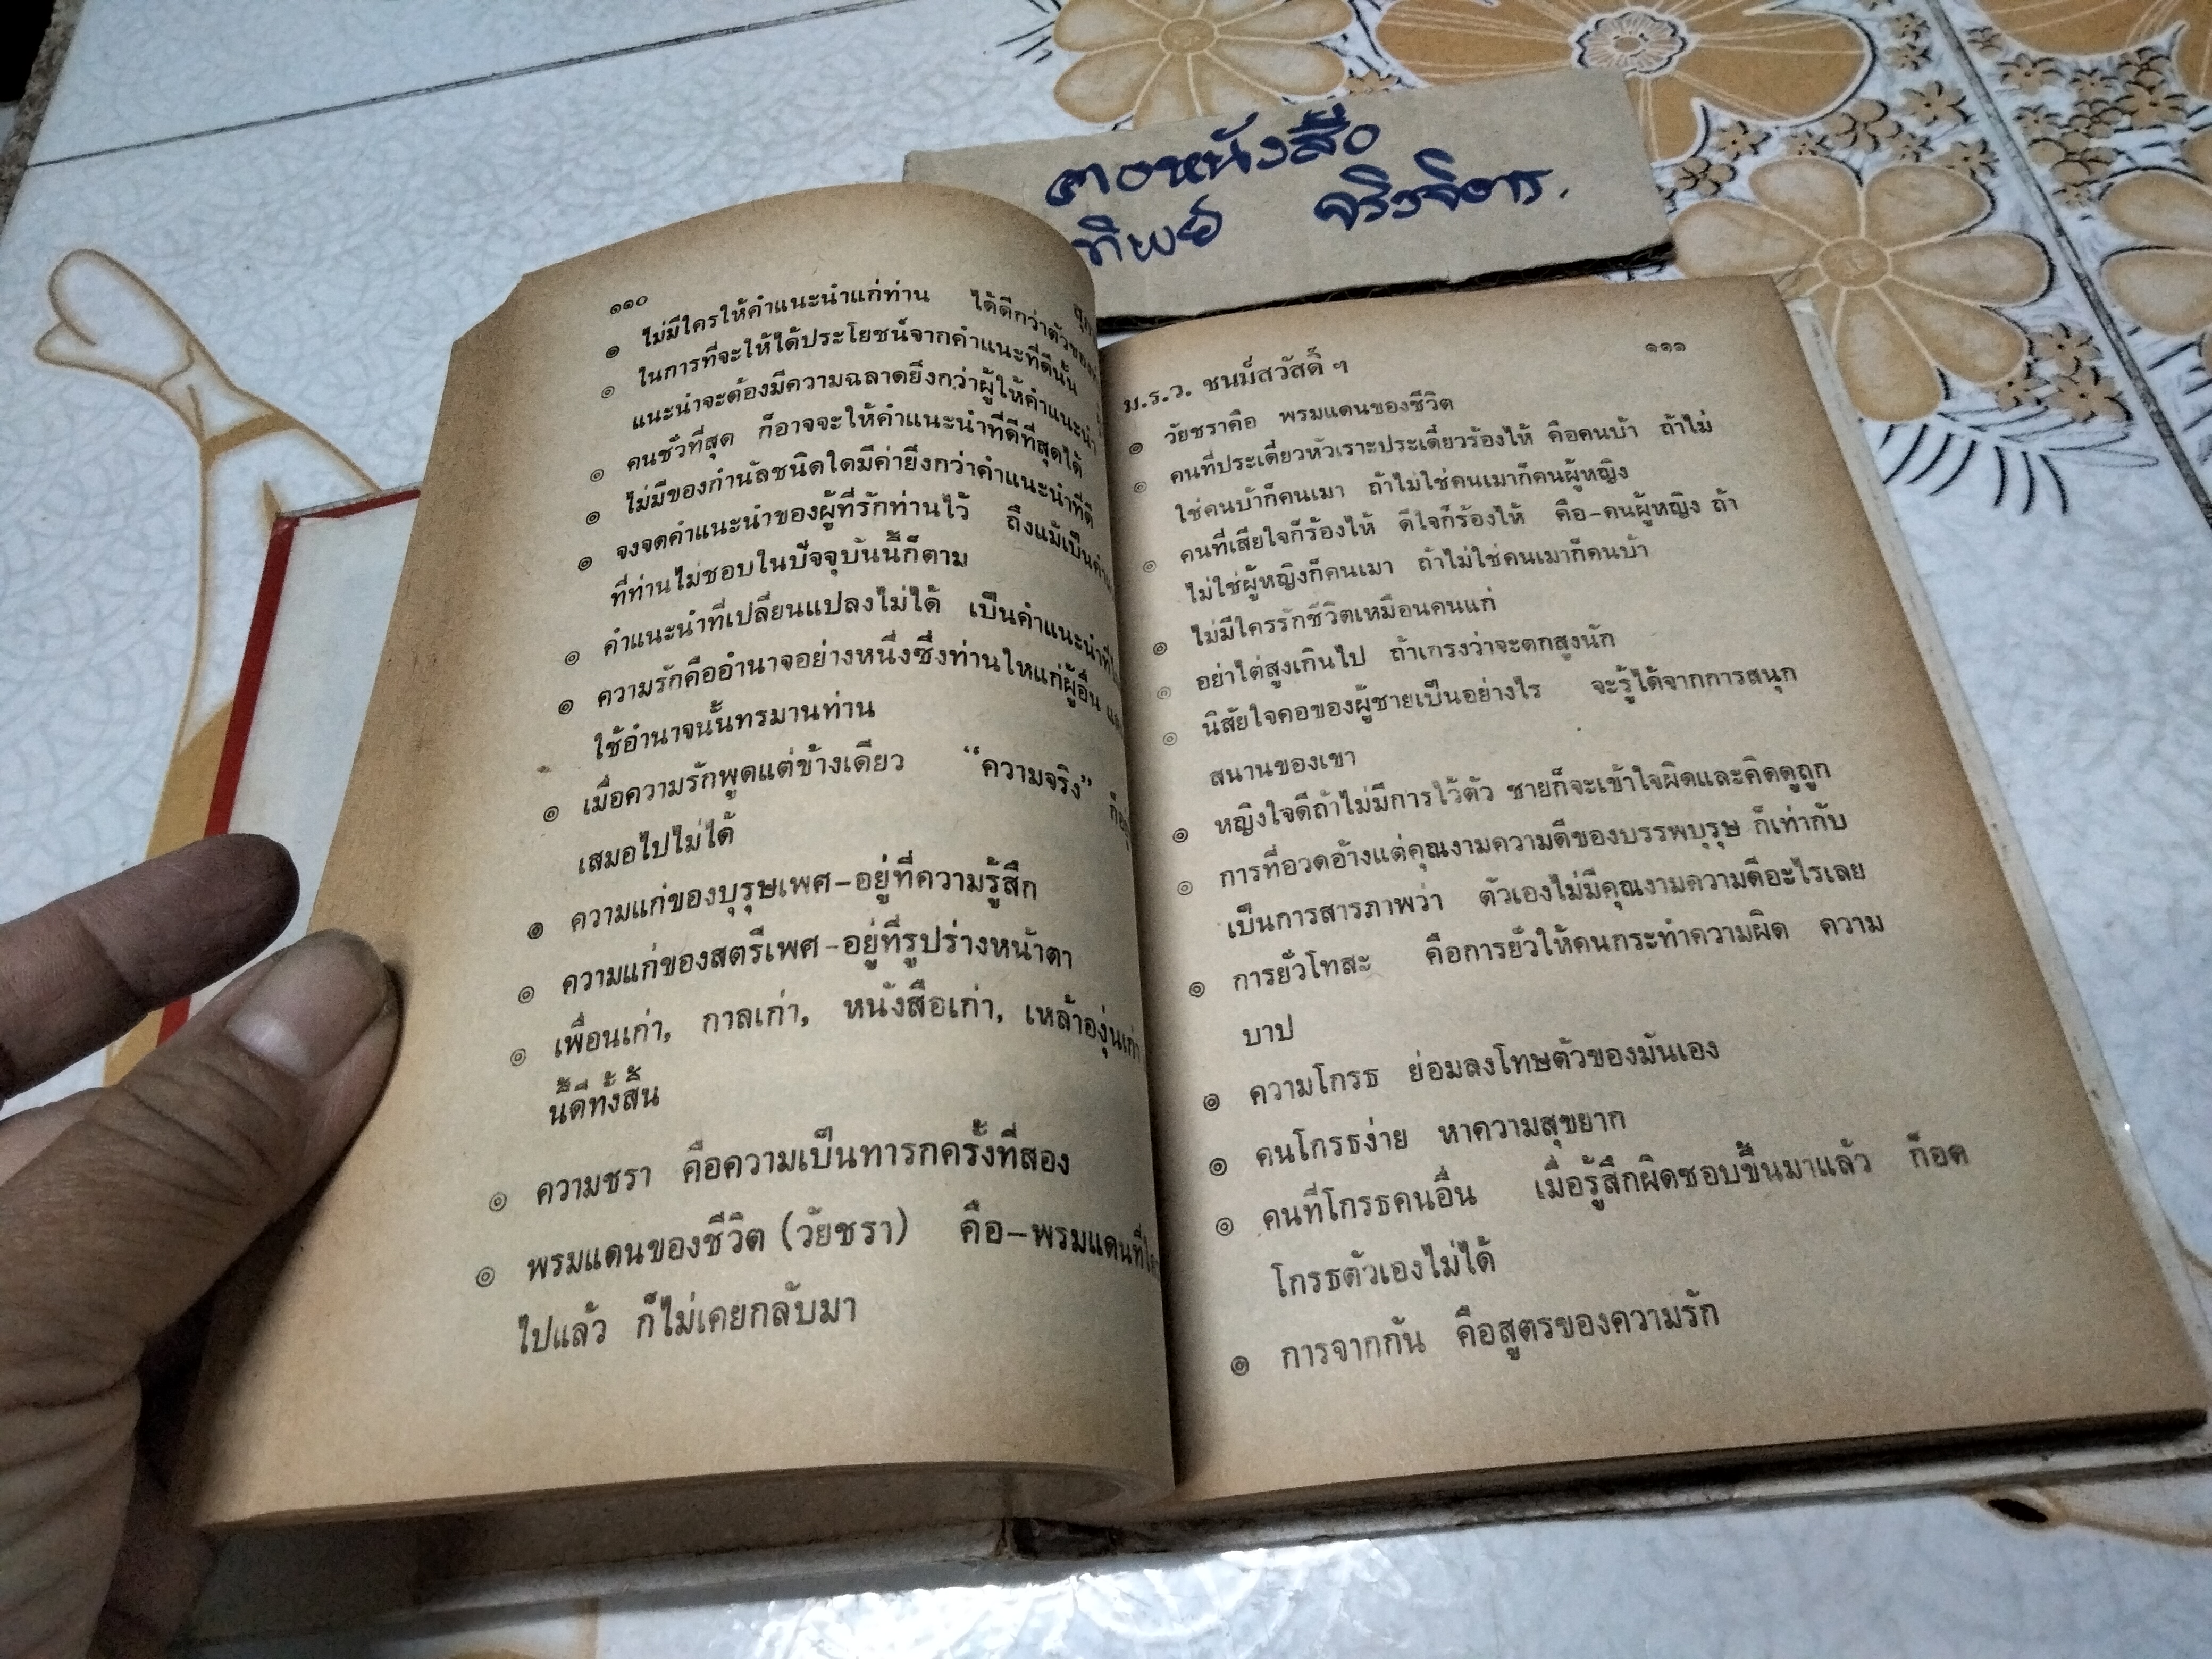 ๑๑๐
๏ ไม่มีใครให้คำแนะนำแก่ท่าน ได้ดีกว่าตัวของ
๏ ในการที่จะให้ได้ประโยชน์จากคำแนะที่ดีนั้น
แนะนำจะต้องมีความฉลาดยิ่งกว่าผู้ให้คำแนะนำ
๏ คนชั่วที่สุด ก็อาจจะให้คำแนะนำที่ดีที่สุดได้
๏ ไม่มีของกำนัลชนิดใดมีค่ายิ่งกว่าคำแนะนำที่ดี
๏ จงจดคำแนะนำของผู้ที่รักท่านไว้ ถึงแม้เป็น
ที่ท่านไม่ชอบในปัจจุบันนี้ก็ตาม
๏ คำแนะนำที่เปลี่ยนแปลงไม่ได้ เป็นคำแนะนำที่
๏ ความรักคืออำนาจอย่างหนึ่งซึ่งท่านให้แก่ผู้อื่น
ใช้อำนาจนั้นทรมานท่าน
๏ เมื่อความรักพูดแต่ข้างเดียว “ความจริง”
เสมอไปไม่ได้
๏ ความแก่ของบุรุษเพศ-อยู่ที่ความรู้สึก
๏ ความแก่ของสตรีเพศ-อยู่ที่รูปร่างหน้าตา
๏ เพื่อนเก่า, กาลเก่า, หนังสือเก่า, เหล้าองุ่นเก่า
นี้ดีทั้งสิ้น
๏ ความชรา คือความเป็นทารกครั้งที่สอง
๏ พรมแดนของชีวิต (วัยชรา) คือ-พรมแดนที่
ไปแล้ว ก็ไม่เคยกลับมา
คอหนังสือ
ทิพย์ จริงจิตร.
๑๑๑
ม.ร.ว. ชนม์สวัสดิ์ ฯ
๏ วัยชราคือ พรมแดนของชีวิต
๏ คนที่ประเดี๋ยวหัวเราะประเดี๋ยวร้องไห้ คือคนบ้า ถ้าไม่
ใช่คนบ้าก็คนเมา ถ้าไม่ใช่คนเมาก็คนผู้หญิง
๏ คนที่เสียใจก็ร้องไห้ ดีใจก็ร้องไห้ คือ-คนผู้หญิง ถ้า
ไม่ใช่ผู้หญิงก็คนเมา ถ้าไม่ใช่คนเมาก็คนบ้า
๏ ไม่มีใครรักชีวิตเหมือนคนแก่
๏ อย่าไต่สูงเกินไป ถ้าเกรงว่าจะตกสูงนัก
๏ นิสัยใจคอของผู้ชายเป็นอย่างไร จะรู้ได้จากการสนุก
สนานของเขา
๏ หญิงใจดีถ้าไม่มีการไว้ตัว ชายก็จะเข้าใจผิดและคิดดูถูก
๏ การที่อวดอ้างแต่คุณงามความดีของบรรพบุรุษ ก็เท่ากับ
เป็นการสารภาพว่า ตัวเองไม่มีคุณงามความดีอะไรเลย
๏ การยั่วโทสะ คือการยั่วให้คนกระทำความผิด ความ
บาป
๏ ความโกรธ ย่อมลงโทษตัวของมันเอง
๏ คนโกรธง่าย หาความสุขยาก
๏ คนที่โกรธคนอื่น เมื่อรู้สึกผิดชอบขึ้นมาแล้ว ก็อด
โกรธตัวเองไม่ได้
๏ การจากกัน คือสูตรของความรัก